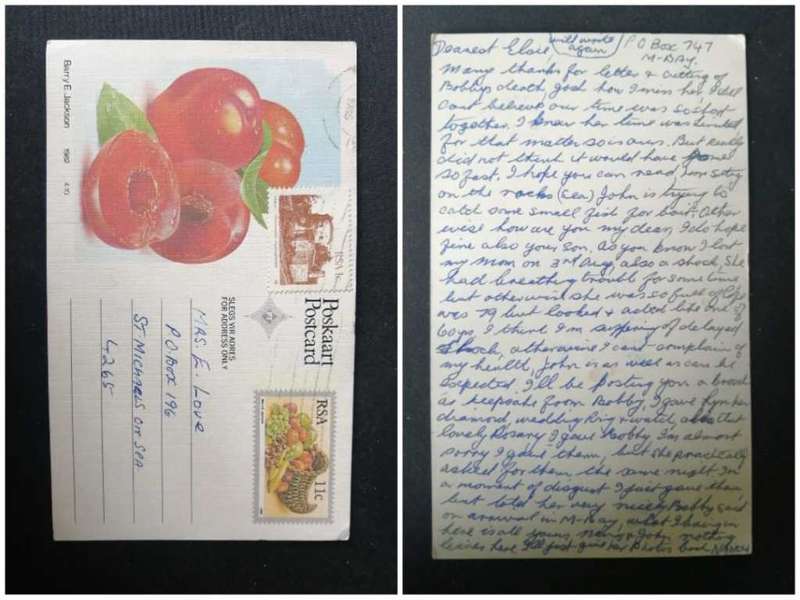 Barry E. Jackson 1982 4.10
RSA 1c
Poskaart
Postcard
SLEGS VIR ADRES
FOR ADDRESS ONLY
RSA
11c
MRS. E. LOVE
P O BOX 196
ST MICHAELS ON SEA
4265
Dearest Elsie will write again P O BOX 747
M-BAY.
Many thanks for letter & cutting of
Bobbys death, gosh how I miss her I still
cant believe our time was so short
together. I knew her time was limited
for that matter so is ours. But really
did not think it would have gone
so fast. I hope you can read, Im sitting
on the rocks (sea) John is trying to
catch some small fish for bait. Other
wise how are you my dear, I do hope
fine also your son. As you know I lost
my mom on 3rd Aug, also a shock, She
had breathing trouble for some time
but otherwise she was so full of life
was 79 but looked & acted like one of 57
boys, I think I'm suffering of delayed
shock, otherwise I cant complain of
my health, John is as well as can be
expected. I'll be posting you a brooch
as keepsake from Bobby, I gave her
diamond wedding Ring & watch, also that
lovely Rosary I gave Bobby. I'm almost
sorry I gave them, but she practically
asked for them the same night In
a moment of disgust I just gave them
but told her very nicely Bobby said
on arrival in M-Bay, what I bring in
here is all yours, & John nothing
leaves here I'll just give her Photos